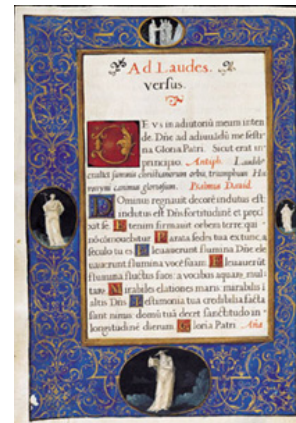 Ad Laudes.
versus.
DE VS in adiutoriũ meum inten
de. Dñe ad adiuuãdũ me festi
na Gloria Patri. Sicut erat in
principio. Antiph.
nymi canimus gloriosum. Psalmus David.
Dominus regnauit decorẽ indutus est:
indutus est Dñs fortitudinẽ et preci
xit se. Etenim firmauit orbem terre: qui
nõ cõmouebitur. Parata sedes tua ex tunc: a
seculo tu es. Eleuauerunt flumina Dñe ele
uauerunt flumina vocẽ suam. Eleuauerũt
flumina fluctus suos: a vocibus aquarũ mul
tarũ. Mirabiles elationes maris: mirabilis ĩ
altis Dñs. Testimonia tua credibilia facta
sunt nimis: domũ tuã decet sanctitudo in
longitudinẽ dierum. Gloria Patri